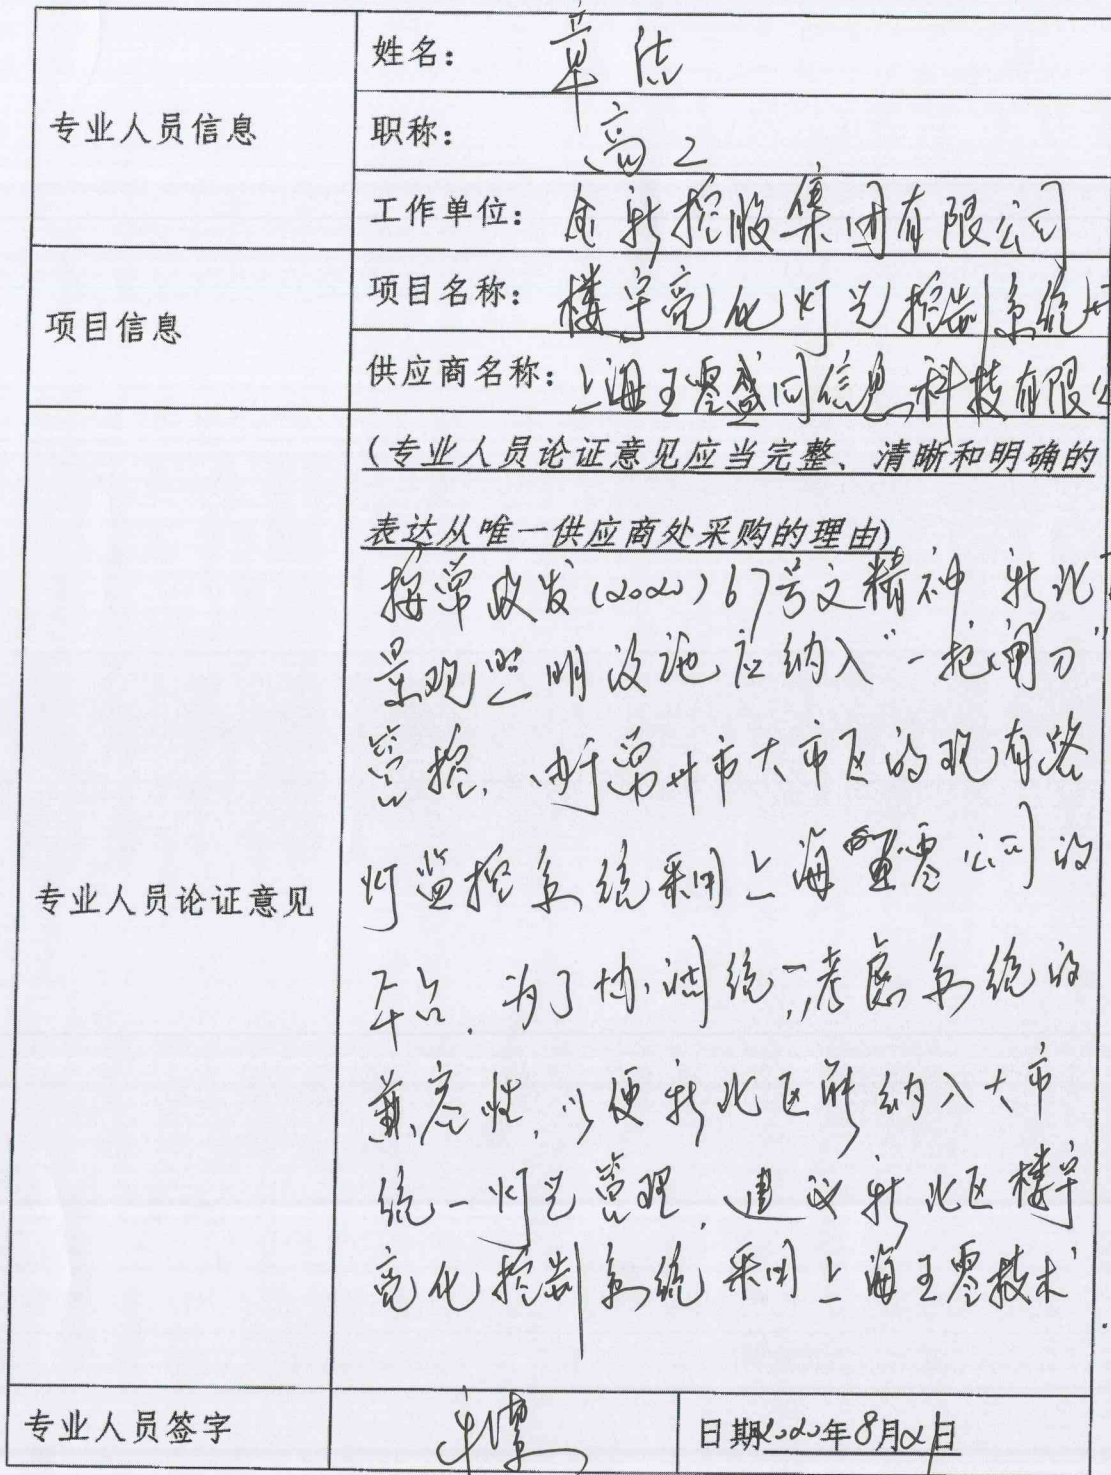 专业人员信息
姓名： 章洁
职称： 高工
工作单位： 金新控股集团有限公司
项目信息
项目名称： 楼宇亮化灯光控制系统
供应商名称： 上海五零盛同信息科技有限公
专业人员论证意见
(专业人员论证意见应当完整、清晰和明确的
表达从唯一供应商处采购的理由)
按常政发(2020)67号文精神 新北
景观照明设施应纳入“一把闸刀”
管控. 由于常州市大市区的现有路
灯监控系统采用上海五零公司的
平台. 为了协调统一,考虑系统的
兼容性, 以便新北区能纳入大市
统一灯光管理, 建议新北区楼宇
亮化控制系统采用上海五零技术.
专业人员签字
日期2020年8月21日